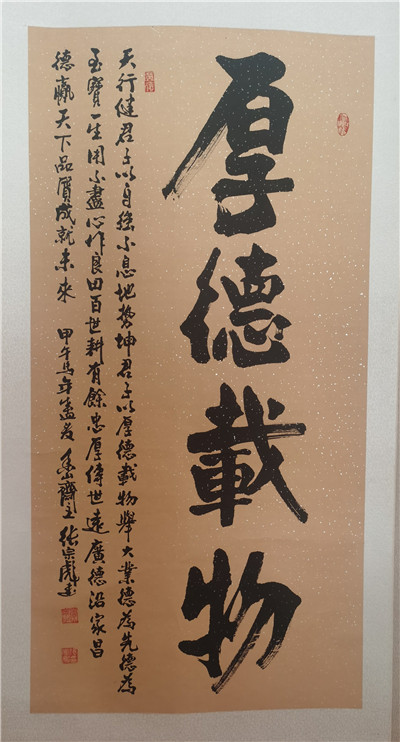 厚德載物
天行健君子以自強不息地势坤君子以厚德載物舉大業德為先德為
至寶一生用不盡心作良田百世耕有餘忠厚傳世遠廣德沿家昌
德贏天下品質成就未來 甲午马年孟夏 齋主 張宗彪書